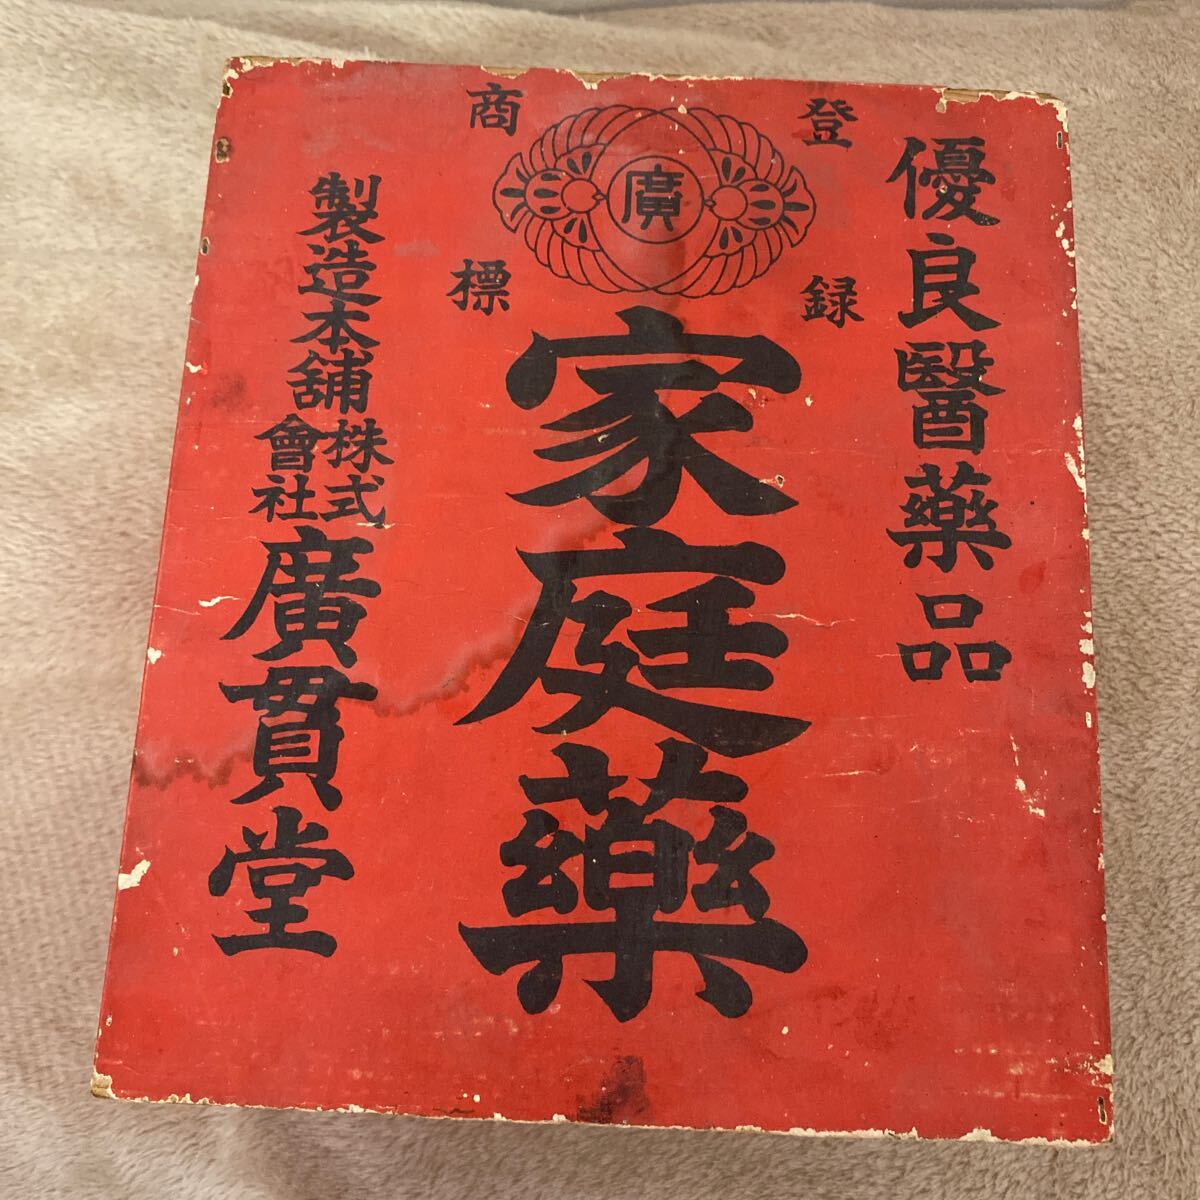 優良醫藥品
登録
商標
廣
家庭藥
製造本舗
株式
會社
廣貫堂